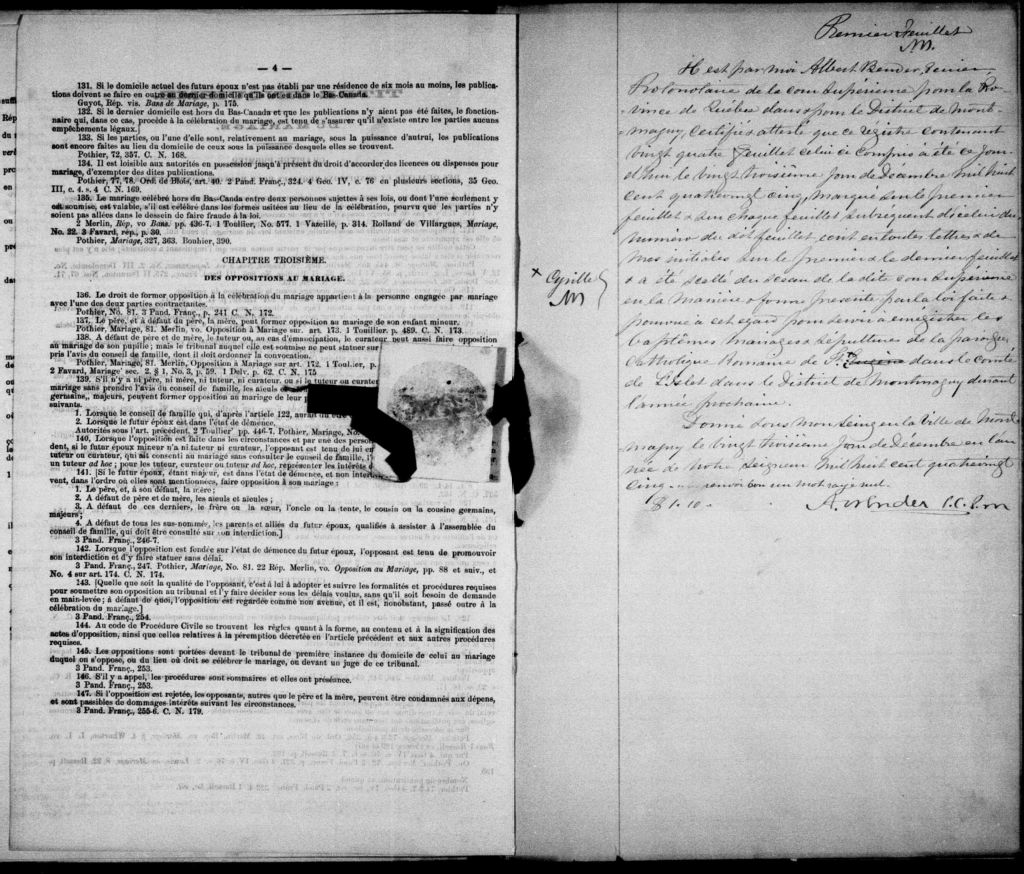 — 4 —
131. Si le domicile actuel des futurs époux n'est pas établi par une résidence de six mois au moins, les publica-
tions doivent se faire en outre au dernier domicile qu'ils ont eu dans le Bas-Canada.
Guyot, Rép. vis. Bans de Mariage, p. 175.
132. Si le dernier domicile est hors du Bas-Canada et que les publications n'y aient pas été faites, le fonction-
naire qui, dans ce cas, procède à la célébration du mariage, est tenu de s'assurer qu'il n'existe entre les parties aucuns
empêchements légaux.
133. Si les parties, ou l'une d'elle sont, relativement au mariage, sous la puissance d'autrui, les publications
sont encore faites au lieu du domicile de ceux sous la puissance desquels elles se trouvent.
Pothier, 72, 357. C. N. 168.
134. Il est loisible aux autorités en possession jusqu'à présent du droit d'accorder des licences ou dispenses pour
mariage, d'exempter des dites publications.
Pothier, 77, 78. Ord. de Blois, art. 40. 2 Pand. Franç., 324. 4 Geo. IV, c. 76 en plusieurs sections, 35 Geo.
III, c. 4. s. 4 C. N. 169.
135. Le mariage célébré hors du Bas-Canada entre deux personnes sujettes à ses lois, ou dont l'une seulement y
est soumise, est valable, s'il est célébré dans les formes usitées au lieu de la célébration, pourvu que les parties n'y
soient pas allées dans le dessein de faire fraude à la loi.
2 Merlin, Rép, vo Bans. pp. 436-7. 1 Toullier, No. 577. 1 Vazeille, p. 314. Rolland de Villargues, Mariage,
No. 22. 3 Favard, rép., p. 30.
Pothier, Mariage, 327, 363. Bouhier, 390.
CHAPITRE TROISIÈME.
DES OPPOSITIONS AU MARIAGE.
136. Le droit de former opposition à la célébration du mariage appartient à la personne engagée par mariage
avec l'une des deux parties contractantes.
Pothier, No. 81. 3 Pand. Franç., p. 241 C. N. 172.
137. Le père, et à défaut du père, la mère, peut former opposition au mariage de son enfant mineur.
Pothier, Mariage, 81. Merlin, vo. Opposition à Mariage sur. art. 173. 1 Touillier. p. 489. C. N. 173.
138. A défaut de père et de mère, le tuteur ou, au cas d'émancipation, le curateur peut aussi faire opposition
au mariage de son pupille; mais le tribunal auquel elle est soumise ne peut statuer sur
pris l'avis du conseil de famille, dont il doit ordonner la convocation.
Pothier, Mariage, 81. Merlin, Opposition à Mariage sur art. 172. 1 Toullier, p.
2 Favard, Mariage' sec. 2. § 1, No. 3, p. 59. 1 Delv. p. 62. C. N. 175
139. S'il n'y a ni père, ni mère, ni tuteur, ni curateur, ou si le tuteur ou curate
mariage sans prendre l'avis du conseil de famille, les aïeuls
germains,, majeurs, peuvent former opposition au mariage de leur
suivants.
1. Lorsque le conseil de famille qui, d'après l'article 122, aurait dû être
2. Lorsque le futur époux est dans l'état de démence.
Autorités sous l'art. précédent. 2 Toullier' pp. 446-7. Pothier, Mariage, No.
140, Lorsque l'opposition est faite dans les circonstances et par une des person
dent, si le futur époux mineur n'a ni tuteur ni curateur, l'opposant est tenu de lui en
tuteur ou curateur, qui ait consenti au mariage sans consulter le conseil de famille, l'
un tuteur ad hoc; pour les tuteur, curateur ou tuteur ad hoc, représenter les intérêts d
141. [Si le futur époux, étant majeur, est dans l'état de démence, et non inter
vent, dans l'ordre où elles sont mentionnées, faire opposition à son mariage:
1. Le père, et, à son défaut, la mère;
2. A défaut de père et de mère, les aïeuls et aïeules;
3. A défaut de ces derniers, le frère ou la sœur, l'oncle ou la tente, le cousin ou la cousine germains,
majeurs;
4. A défaut de tous les sus-nommés, les parents et alliés du futur époux, qualifiés à assister à l'assemblée du
conseil de famille, qui doit être consulté sur son interdiction.]
3 Pand. Franç., 246-7.
142. Lorsque l'opposition est fondée sur l'état de démence du futur époux, l'opposant est tenu de promouvoir
son interdiction et d'y faire statuer sans délai.
3 Pand. Franç., 247. Pothier, Mariage, No. 81. 22 Rép. Merlin, vo. Opposition au Mariage, pp. 88 et suiv., et
No. 4 sur art. 174. C. N. 174.
143. [Quelque soit la qualité de l'opposant, c'est à lui à adopter et suivre les formalités et procédures requises
pour soumettre son opposition au tribunal et l'y faire décider sous les délais voulus, sans qu'il soit besoin de demande
en main-levée; à défaut de quoi, l'opposition est regardée comme non avenue, et il est, nonobstant, passé outre à la
célébration du mariage.]
3 Pand. Franç., 254.
144. Au code de Procédure Civile se trouvent les règles quant à la forme, au contenu et à la signification des
actes d'opposition, ainsi que celles relatives à la péremption décrétée en l'article précédent et aux autres procédures
requises.
145. Les oppositions sont portées devant le tribunal de première instance du domicile de celui au mariage
duquel on s'oppose, ou du lieu où doit se célébrer le mariage, ou devant un juge de ce tribunal.
3 Pand. Franç., 253.
146. S'il y a appel, les procédures sont sommaires et elles ont préséance.
3 Pand. Franç., 253.
147. Si l'opposition est rejetée, les opposants, autres que le père et la mère, peuvent être condamnés aux dépens,
et sont passibles de dommages-intérêts suivant les circonstances.
3 Pand. Franç., 255-6. C. N. 179.
Premier Feuillet
M.
Il est par moi Albert Bender, Ecuier
Protonotaire de la cour Supérieure pour la Pro-
vince de Québec dans & pour le District de Mont-
magny, certifié & attesté que ce régistre contenant
vingt quatre feuillets celui ci compris a été ce jour-
d'hui le vingt troisième jour de Décembre mil huit
cent quatre vingt cinq, marqué sur le premier
feuillet & sur chaque feuillet subséquent d'icelui du
numéro du dit feuillet, écrit en toutes lettres & de
mes initiales sur le premier & le dernier feuillet
& a été scellé du sceau de la dite cour Supérieure
en la manière & forme prescrite par la loi faite &
pourvue à cet égard pour servir à enrégistrer les
baptêmes mariages & sépultures de la paroisse
Catholique Romaine de St. dans le comté
de L'Islet dans le District de Montmagny durant
l'année prochaine.
Donné sous mon seing en la ville de Mont-
magny le vingt troisième jour de Décembre en l'an-
née de notre Seigneur mil huit cent quatre vingt
cinq renvoi bon un mot rayé nul.
× Cyrille
M
A. Bender P.C.S.M